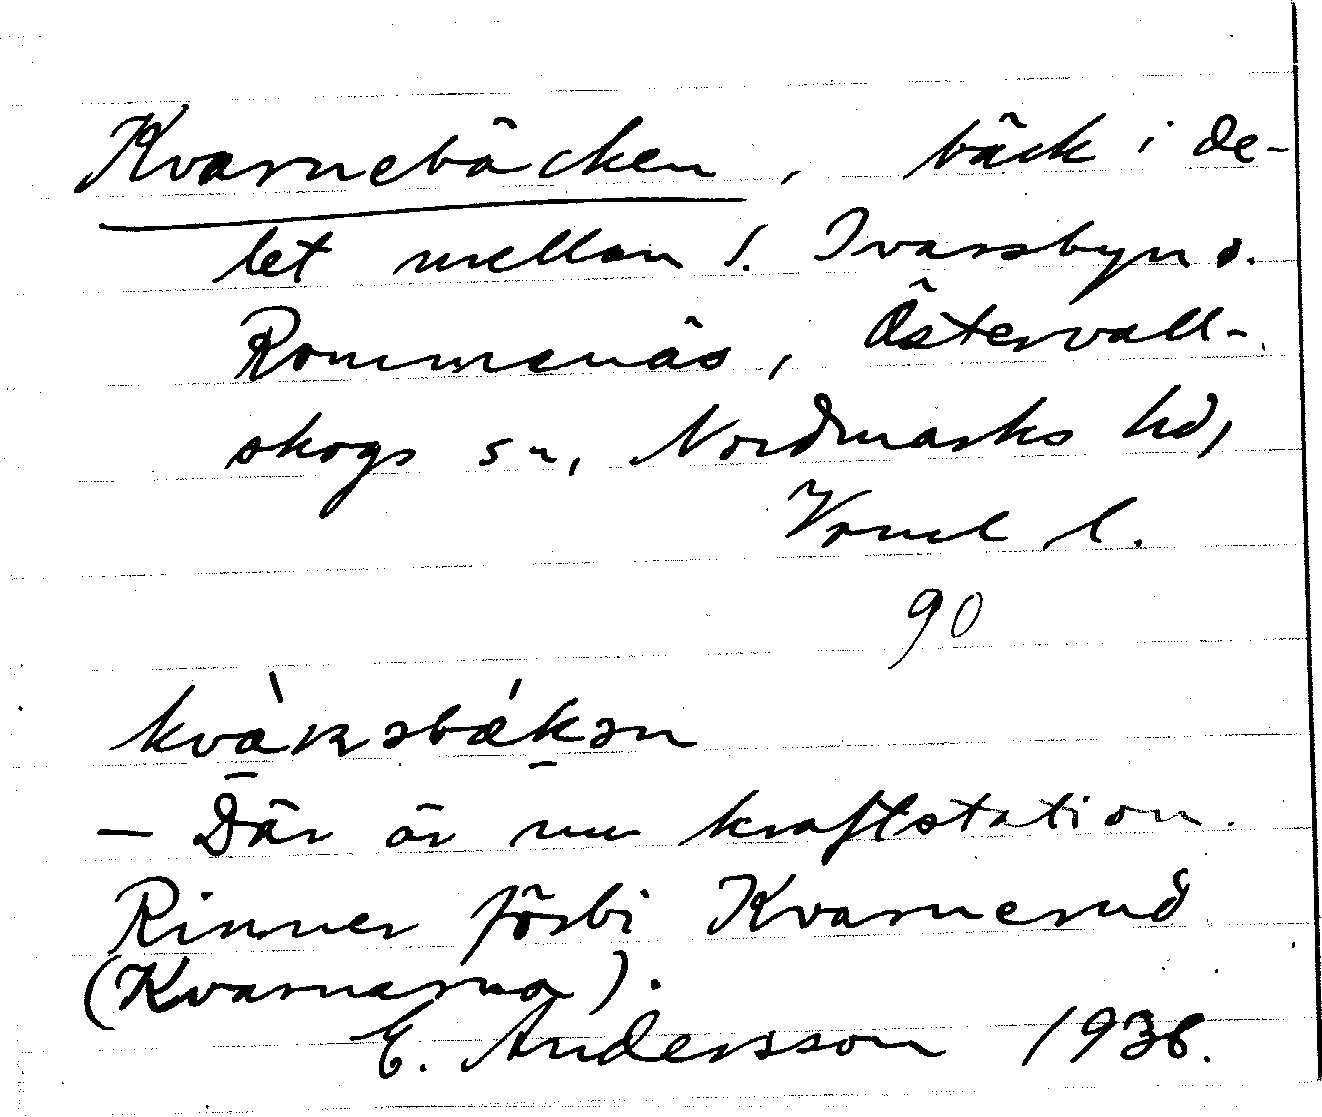 Kvarnebäcken, bäck i de-
let mellan l. Ivarsbyn o.
Rommenäs, Östervall-
skogs sn, Nordmarks hd,
Vrml l.
90
kvà̱ʀnəbǽ̱kən
— Där är nu kraftstation.
Rinner förbi Kvarnerud
(Kvarnarna).
E. Andersson 1936.